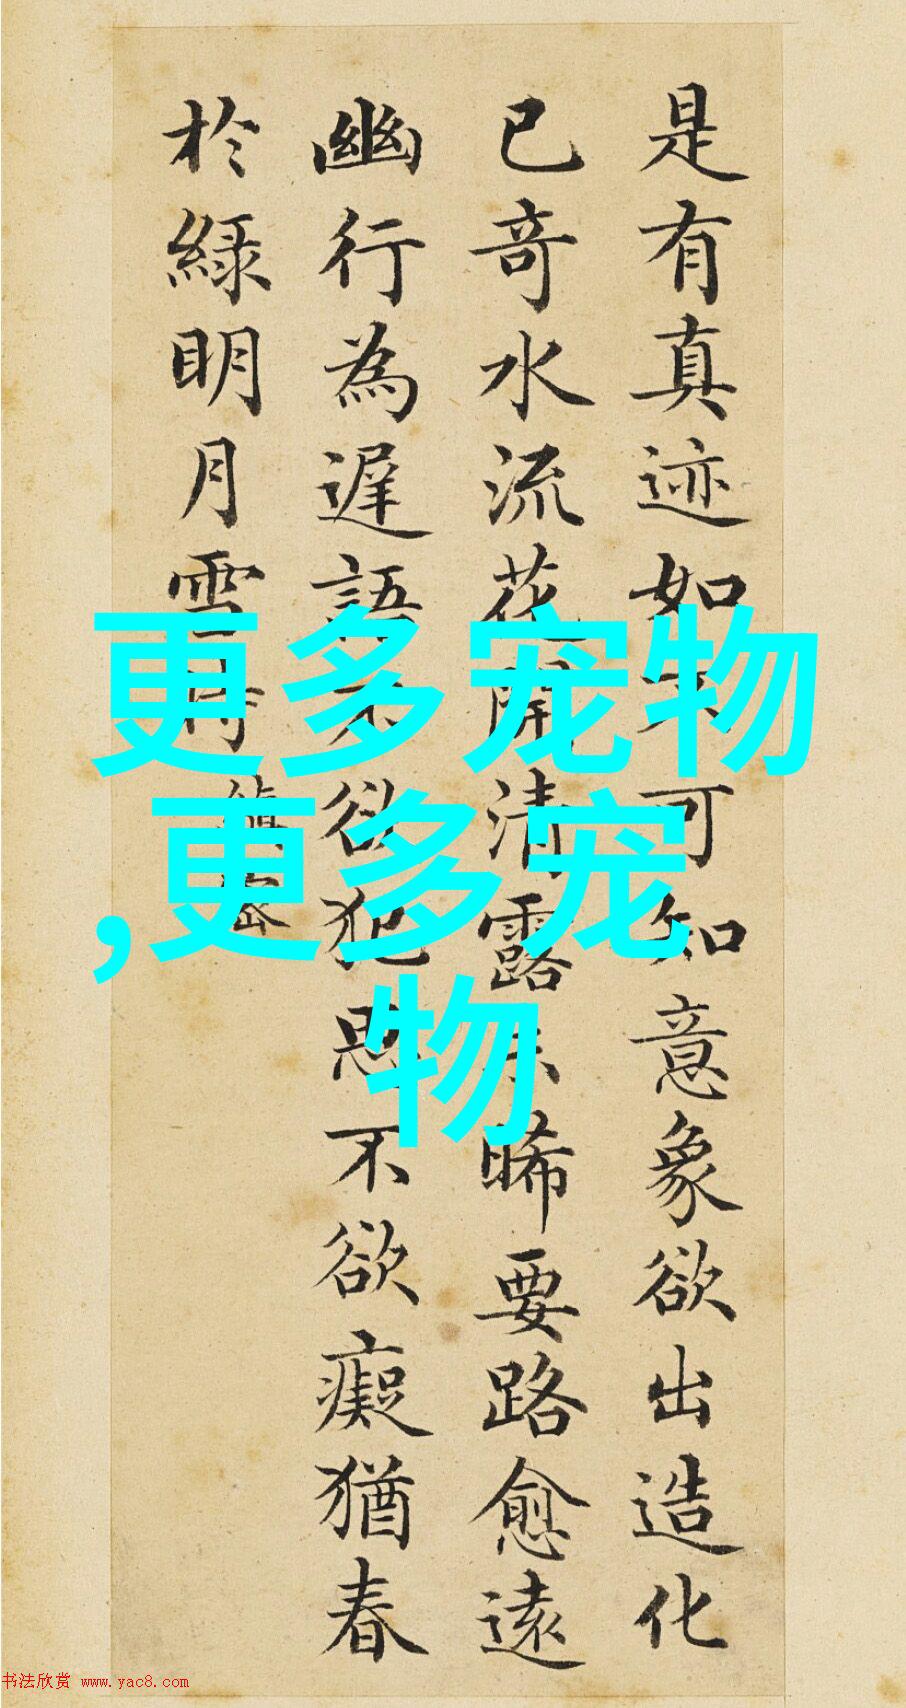 是有真迹如不可知意象欲出造化
已竒水流花開清露未晞要路愈遠
幽行為遲語不欲犯思不欲癡猶春
於綠明月雪時
縝密
更多宠物
,更多宠
物
书法欣赏 www.yac8.com